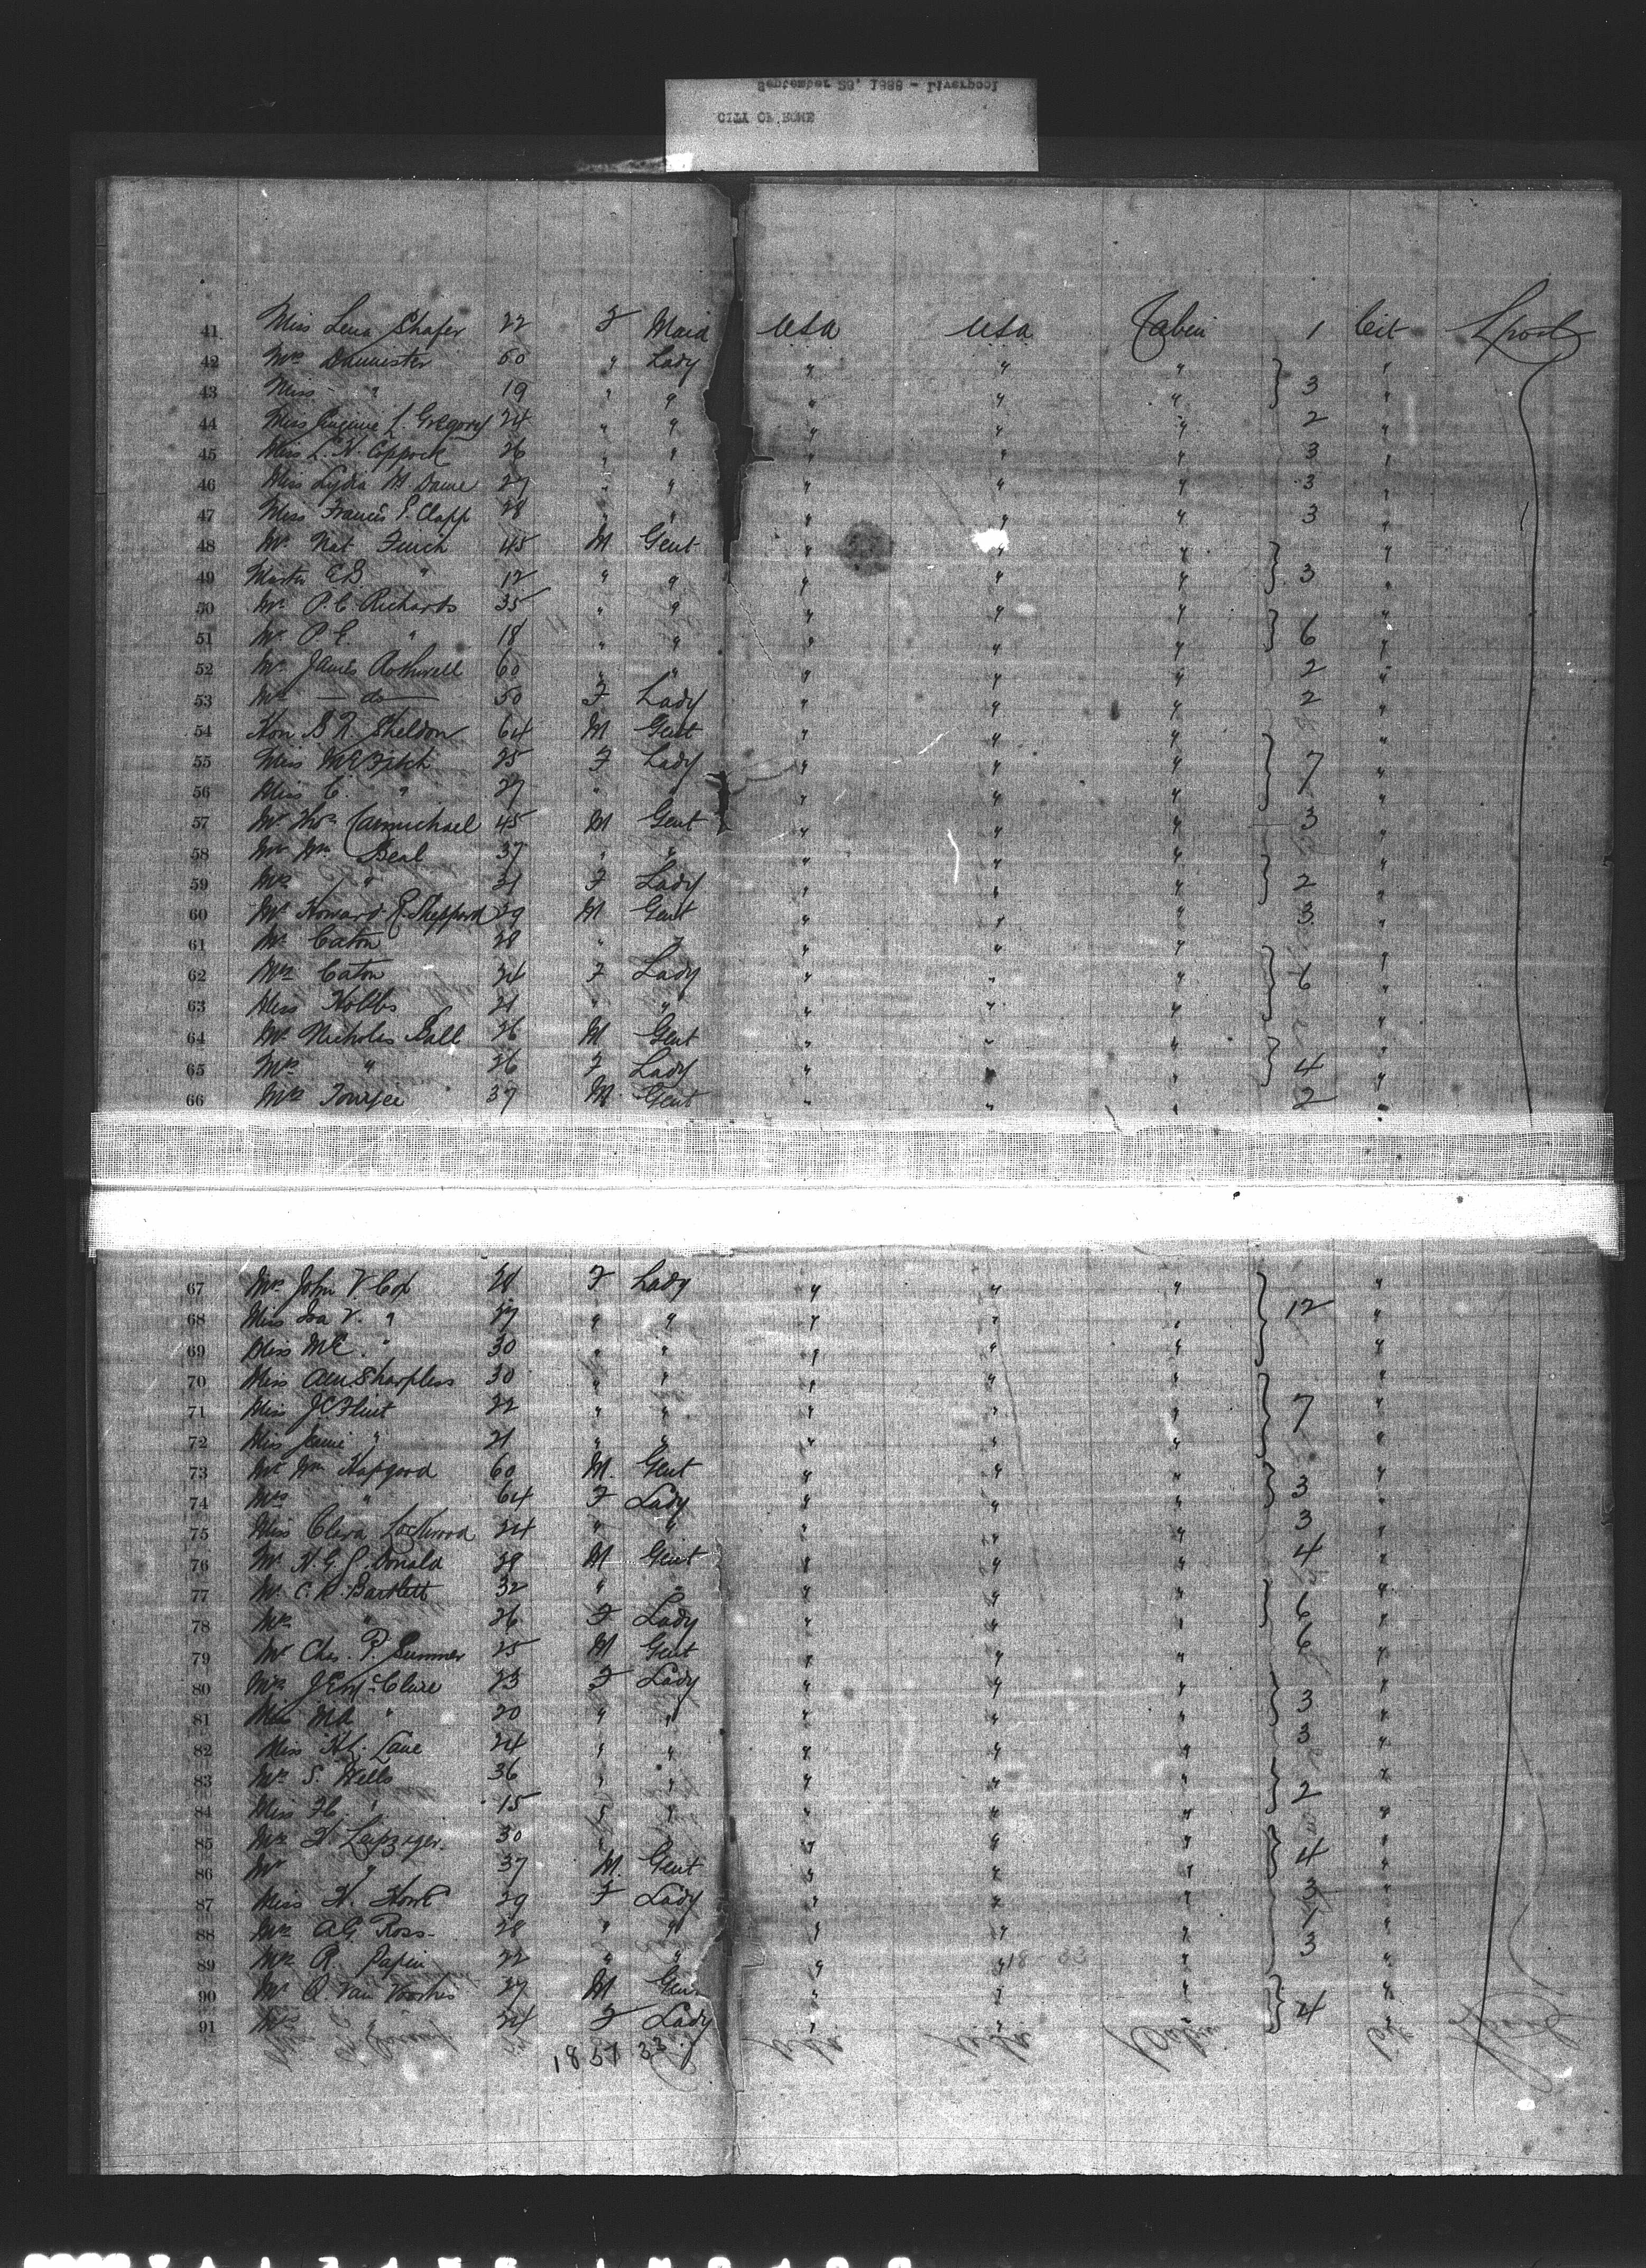 September 29, 1888 - Liverpool
CITY OF ROME
41 Miss Lena Shafer 22 F Maid USA USA Cabin 1 Cit Lpool
42 Mrs Bannister 60 " Lady " " " "
43 Miss " 19 " " " " " 3 "
44 Miss Eugenie L. Gregory 24 " " " " " 2 "
45 Miss L. H. Coppock 26 " " " " " 3 "
46 Miss Lydia M. Dame 27 " " " " " 3 "
47 Miss Francis E. Clapp 28 " " " " " 3 "
48 Mr Nat. French 45 M Gent " " " "
49 Master E.D. " 12 " " " " " 3 "
50 Mr P.C. Richards 35 " " " " " "
51 Mr P.E. " 18 " " " " " 6 "
52 Mr James Rothwell 60 " " " " " 2 "
53 Mrs — do — 50 F Lady " " " 2 "
54 Hon S R. Sheldon 64 M Gent " " " "
55 Miss M E Fitch 25 F Lady " " " 7 "
56 Miss C. " 27 " " " " " "
57 Mr Thos Carmichael 45 M Gent " " " 3 "
58 Mr Wm Beal 37 " " " " " "
59 Mrs " 31 F Lady " " " 2 "
60 Mr Howard R. Sheppard 29 M Gent " " " 3 "
61 Mr Caton 28 " " " " " "
62 Mrs Caton 24 F Lady " " " 6 "
63 Miss Hobbs 21 " " " " " "
64 Mr Nicholas Ball 26 M Gent " " " "
65 Mrs " 26 F Lady " " " 4 "
66 Mr Tourjee 37 M Gent " " " 2 "
67 Mrs John V. Cox F Lady " " " "
68 Miss Ida V. " " " " " " 12 "
69 Miss M E. " 30 " " " " " "
70 Miss Sharpless 30 " " " " " "
71 Miss J C Flint 22 " " " " " 7 "
72 Miss Jennie " 21 " " " " " "
73 Mr Wm Hapgood 60 M Gent " " " "
74 Mrs " 64 F Lady " " " 3 "
75 Miss Clara Lockwood 24 " " " " " 3 "
76 Mr H.G. S. Donald 28 M Gent " " " 4 "
77 Mr C. H. Bartlett 32 " " " " " "
78 Mrs " 26 F Lady " " " 6 "
79 Mr Chas. P. Sumner 25 M Gent " " " 6 "
80 Mrs J E McClure 23 F Lady " " " "
81 Miss MA " 20 " " " " " 3 "
82 Miss H L. Lane 24 " " " " " 3 "
83 Mrs S. Wells 36 " " " " " "
84 Miss " 15 " " " " " 2 "
85 Mrs H Leipziger 30 " " " " "
86 Mr " 37 M. Gent " " " 4 "
87 Miss H. 29 F Lady " " " 3 "
88 Mrs A G. Ross 28 " " " " " 1 "
89 Mrs R. Papin 22 " " " " " 3 "
90 Mr Q Van Voorhis 27 M Gen " " " "
91 Mrs " 24 F Lady " " " 4 "
18 57 33